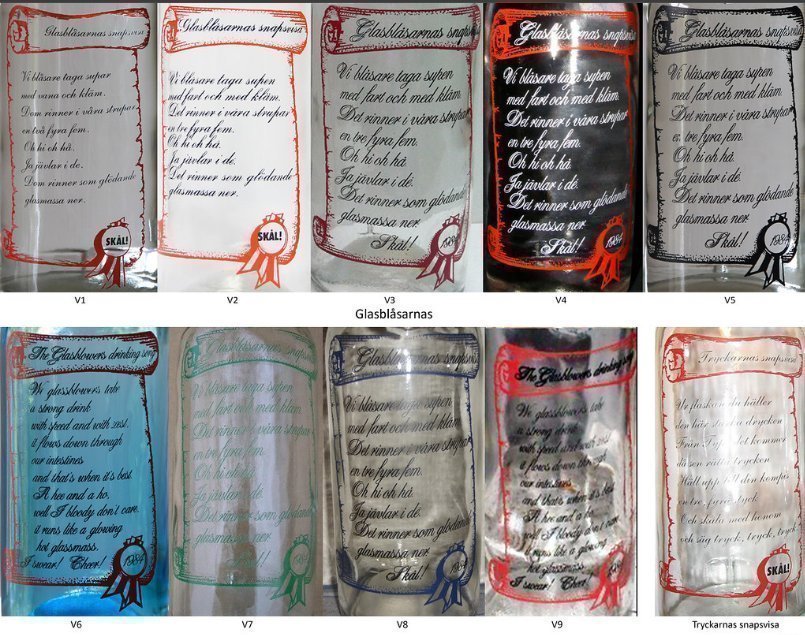 Glasblåsarnas snapsvisa
Vi blåsare taga supar
med vana och kläm.
Dom rinner i våra strupar
en två fyra fem.
Oh hi oh hå.
Ja jävlar i de.
Dom rinner som glödande
glasmassa ner.
SKÅL!
V1
Glasblåsarnas snapsvisa
Vi blåsare taga supen
med fart och med kläm.
Det rinner i våra strupar
en tre fyra fem.
Oh hi oh hå.
Ja jävlar i de.
Det rinner som glödande
glasmassa ner.
SKÅL!
V2
Glasblåsarnas snapsvisa
Vi blåsare taga supen
med fart och med kläm.
Det rinner i våra strupar
en tre fyra fem.
Oh hi oh hå.
Ja jävlar i dé.
Det rinner som glödande
glasmassa ner.
Skål!
1984
V3
Glasblåsarnas snapsvisa
Vi blåsare taga supen
med fart och med kläm.
Det rinner i våra strupar
en tre fyra fem.
Oh hi oh hå.
Ja jävlar i dé.
Det rinner som glödande
glasmassa ner.
Skål!
1984
V4
Glasblåsarnas snapsvisa
Vi blåsare taga supen
med fart och med kläm.
Det rinner i våra strupar
en tre fyra fem.
Oh hi oh hå.
Ja jävlar i dé.
Det rinner som glödande
glasmassa ner.
Skål!
1984
V5
Glasblåsarnas
The Glasblowers drinking song
We glassblowers take
a strong drink
with speed and with zest.
it flows down through
our intestines
and that's when it's best.
A hee and a ho,
well I bloody don't care.
it runs like a glowing
hot glassmass.
I swear! Cheer!
1984
V6
Glasblåsarnas snapsvisa
Vi blåsare taga supen
med fart och med kläm.
Det rinner i våra strupar
en tre fyra fem.
Oh hi oh hå.
Ja jävlar i dé.
Det rinner som glödande
glasmassa ner.
Skål!
1984
V7
Glasblåsarnas snapsvisa
Vi blåsare taga supen
med fart och med kläm.
Det rinner i våra strupar
en tre fyra fem.
Oh hi oh hå.
Ja jävlar i dé.
Det rinner som glödande
glasmassa ner.
Skål!
1984
V8
The Glasblowers drinking song
We glassblowers take
a strong drink
with speed and with zest.
it flows down through
our intestines
and that's when it's best.
A hee and a ho,
well I bloody don't care.
it runs like a glowing
hot glassmass.
I swear! Cheer!
1984
V9
Tryckarnas snapsvisa
Ur flaskan du häller
den här starka drycken
Från det kommer
då sen rätta trycken
Häll upp till din kompis
en tre, fyra tyck
Och skåla med honom
och säg tryck, tryck, tryck
SKÅL!
Tryckarnas snapsvisa